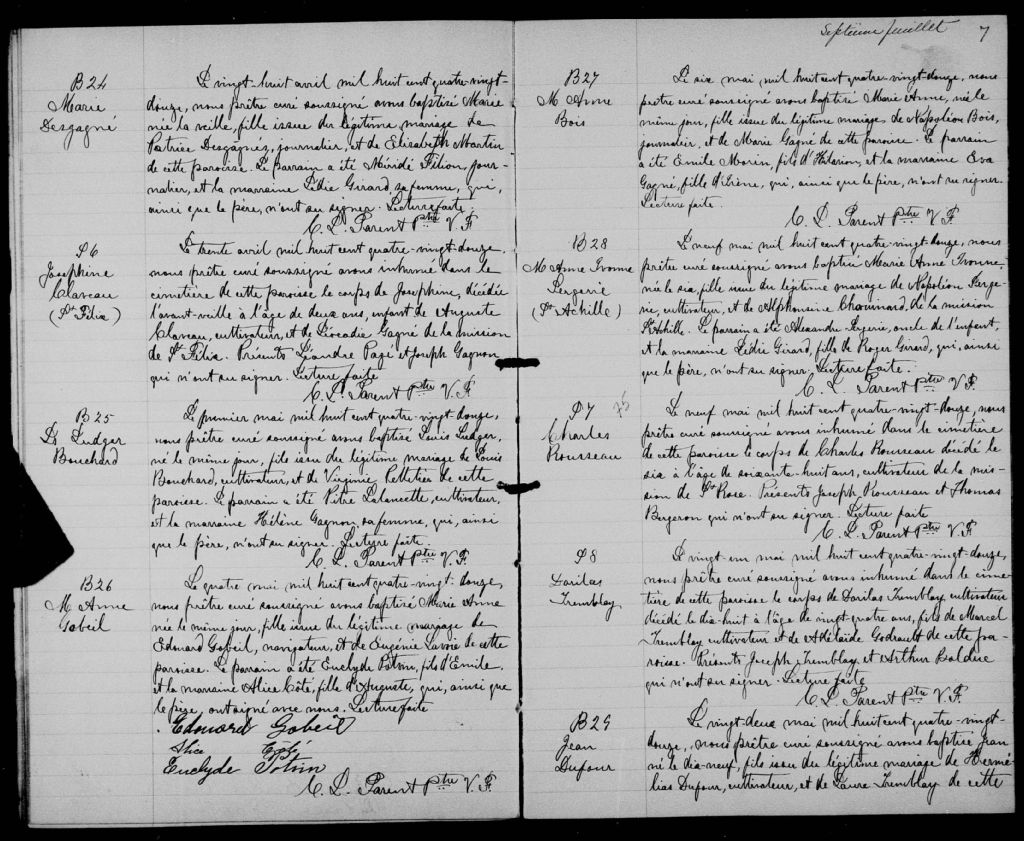 B24
Marie
Desgagné
Le vingt-huit avril mil huit cent quatre-vingt-
douze, nous prêtre curé soussigné avons baptisé Marie
née la veille, fille issue du légitime mariage de
Patrice Desgagnés, journalier, et de Elisabeth Martin
de cette paroisse. Le parrain a été Méridé Filion, jour-
nalier, et la marraine Lédie Girard, sa femme, qui,
ainsi que le père, n'ont su signer. Lecture faite.
C. L. Parent Ptre V. F.
S6
Josephine
Claveau
(St Félix)
Le trente avril mil huit cent quatre-vingt-douze,
nous prêtre curé soussigné avons inhumé dans le
cimetière de cette paroisse le corps de Josephine, décédée
l'avant-veille à l'âge de deux ans, enfant de Auguste
Claveau, cultivateur, et de Léocadie Gagné de la mission
de St Félix. Présents Léandre Pagé et Joseph Gagnon
qui n'ont su signer. Lecture faite
C. L. Parent Ptre V. F.
B25
Ls Ludger
Bouchard
Le premier mai mil huit cent quatre-vingt-douze,
nous prêtre curé soussigné avons baptisé Louis Ludger,
né le même jour, fils issu du légitime mariage de Louis
Bouchard, cultivateur, et de Virginie Pelletier de cette
paroisse. Le parrain a été Pitre Lalancette, cultivateur,
et la marraine Hélène Gagnon, sa femme, qui, ainsi
que le père, n'ont su signer. Lecture faite.
C. L. Parent Ptre V. F.
B26
M Anne
Gobeil
Le quatre mai mil huit cent quatre-vingt-douze,
nous prêtre curé soussigné avons baptisé Marie Anne
née le même jour, fille issue du légitime mariage de
Edouard Gobeil, navigateur, et de Eugénie Lavoie de cette
paroisse. Le parrain a été Euclyde Potvin, fils d'Emile
et la marraine Alice Côté, fille d'Auguste, qui, ainsi que
le père, ont signé avec nous. Lecture faite
Edouard Gobeil
Alice Coté
Euclyde Potvin
C. L. Parent Ptre V. F.
Septième feuillet 7
B27
M Anne
Bois
Le six mai mil huit cent quatre-vingt-douze, nous
prêtre curé soussigné avons baptisé Marie Anne, née le
même jour, fille issue du légitime mariage de Napoléon Bois,
journalier, et de Marie Gagné de cette paroisse. Le parrain
a été Emile Morin, fils d'Hilarion, et la marraine Eva
Gagné, fille d'Irène, qui, ainsi que le père, n'ont su signer.
Lecture faite.
C. L. Parent Ptre V. F.
B28
M Anne Ivonne
Lizerie
(St Achille)
Le neuf mai mil huit cent quatre-vingt-douze, nous
prêtre curé soussigné avons baptisé Marie Anne Ivonne,
née le six, fille issue du légitime mariage de Napoléon
cultivateur, et de Alphonsine Chouinard, de la mission
St Achille. Le parrain a été Alexandre oncle de l'enfant,
et la marraine Lédie Girard, fille de Roger Girard, qui, ainsi
que le père, n'ont su signer. Lecture faite.
C. L. Parent Ptre V. F.
S7
Charles
Rousseau
Le neuf mai mil huit cent quatre-vingt-douze, nous
prêtre curé soussigné avons inhumé dans le cimetière
de cette paroisse le corps de Charles Rousseau décédé le
six à l'âge de soixante huit ans, cultivateur de la mis-
sion de St Rose. Présents Joseph Rousseau et Thomas
Bergeron qui n'ont su signer. Lecture faite
C. L. Parent Ptre V. F.
S8
Dorilas
Tremblay
Le vingt-un mai mil huit cent quatre-vingt-douze,
nous prêtre curé soussigné avons inhumé dans le cime-
tière de cette paroisse le corps de Dorilas Tremblay, cultivateur
décédé le dix-huit à l'âge de vingt-quatre ans, fils de Marcel
Tremblay cultivateur et de Adélaïde Godreault de cette pa-
roisse. Présents Joseph Tremblay et Arthur Bolduc
qui n'ont su signer. Lecture faite
C. L. Parent Ptre V. F.
B29
Jean
Dufour
Le vingt-deux mai mil huit cent quatre-vingt-
douze, nous prêtre curé soussigné avons baptisé Jean
né le dix-neuf, fils issu du légitime mariage de Hermé-
lias Dufour, cultivateur, et de Laure Tremblay de cette